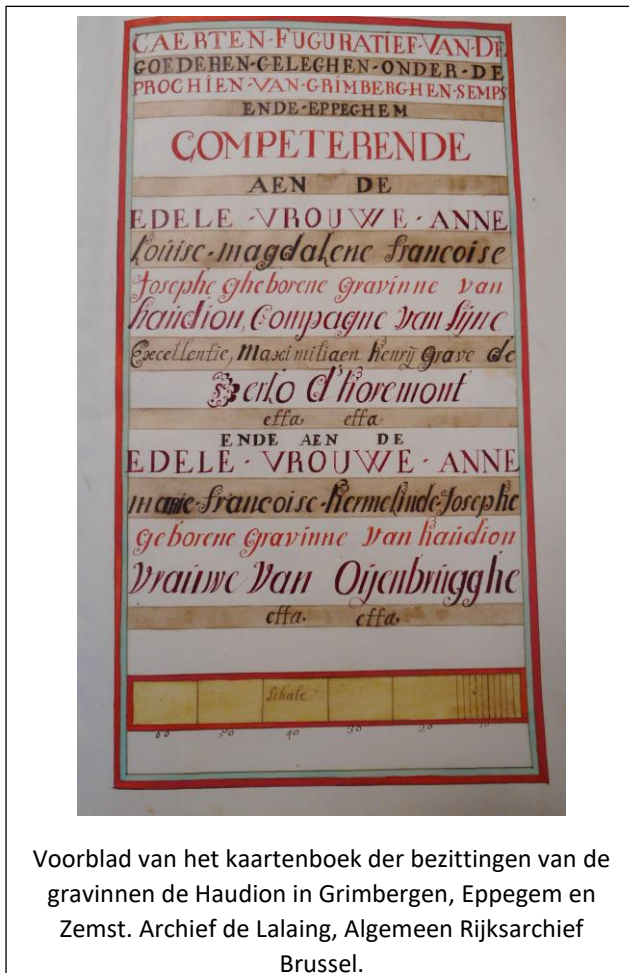 CAERTEN-FUGURATIEF-VAN-DE
GOEDEREN-GELEGHEN-ONDER-DE
PROCHIEN-VAN-GRIMBERGHEN-SEMPS
ENDE-EPPEGHEM
COMPETERENDE
AEN DE
EDELE-VROUWE-ANNE
Louise-magdalene francoise
Josephe gheborene gravinne van
haudion, Compagne van sijne
Excellentie, Maximiliaen henrij grave de
Berlo d'horemont
effa effa
ENDE AEN DE
EDELE-VROUWE-ANNE
marie-francoise-hermelinde-Josephe
geborene gravinne van haudion
vrauwe van Oijenbrugghe
effa. effa.
Schale
60 50 40 30 20 10
Voorblad van het kaartenboek der bezittingen van de
gravinnen de Haudion in Grimbergen, Eppegem en
Zemst. Archief de Lalaing, Algemeen Rijksarchief
Brussel.